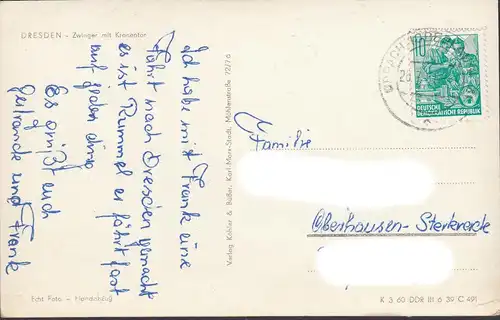 DRESDEN – Zwinger mit Kronentor
Ich habe mit Frank eine
Fahrt nach Dresden gemacht
es ist Rummel er fährt fast
auf jeden
Es grüßt euch
Gertraude und Frank
Echt Foto – Handabzug
Verlag Köhler & Büßer, Karl-Marx-Stadt, Mühlenstraße 72/76
10
DEUTSCHE
DEMOKRATISCHE REPUBLIK
Familie
Oberhausen-Sterkrade
K 3 60 DDR III 6 39 C 491